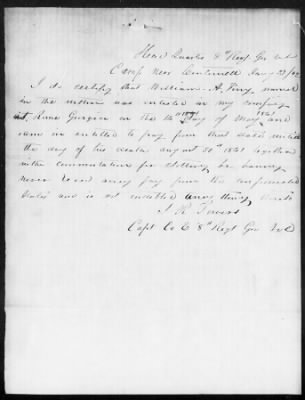 Head Quarters 8th Regt Ga Vol
Camp Near Centreville Jany 23/62
I do certify that William A. King named
in the within was enlisted in my company
at Rome Georgia on the 14th day of May 1861 and
is entitled to pay from that date until
the day of his death august 30th 1861 together
with commutation for clothing he having
never recd any pay from the confederate
States and is not indebted any thing
J R Towers
Capt Co E 8th Regt Ga Vol